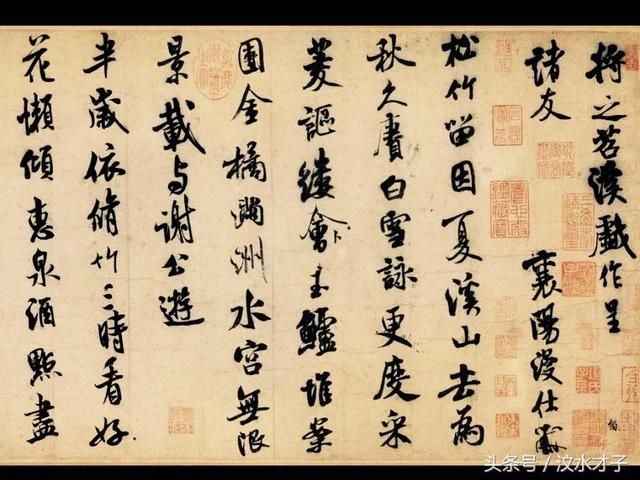 将之苕溪戏作呈
诸友 襄阳漫仕黻
松竹留因夏溪山去为
秋久赓白雪咏更度采
菱讴缕会卜玉鲈堆案
团金橘满洲水宫无限
景载与谢公游
半岁依修竹三时看好
花懒倾惠泉酒点尽
头条号/汶水才子